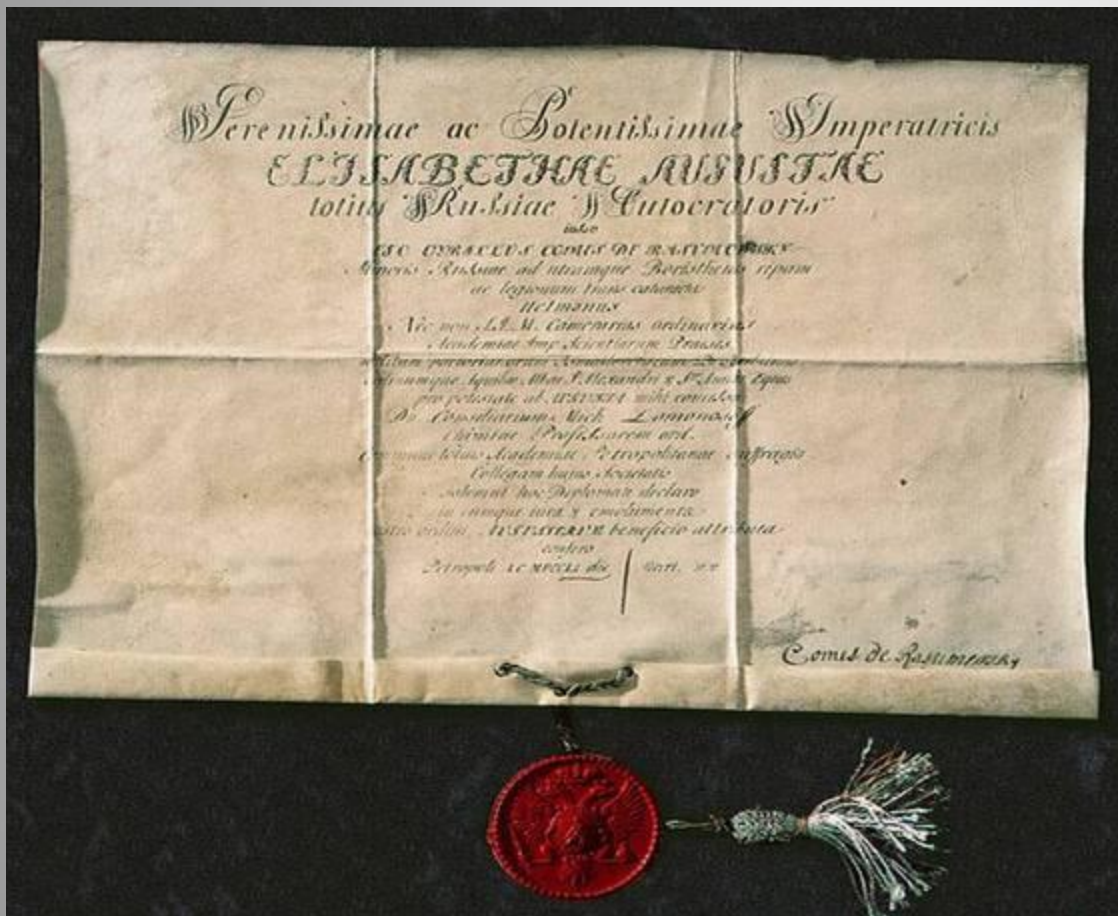 Serenissimae ac Potentissimae Imperatricis
ELISABETHAE AUGUSTAE
totius Russiae Autocratoris
iussu
EGO CYRILLUS COMES DE RASUMOWSKY
Minoris Russiae ad utramque Boristhenis ripam
ac legionum trans
Hetmanus
Nec non S.I.M. Camerarius ordinarius
Academiae Imp. Scientiarum Praeses
Ordinumque Aquilae Albae S. Alexandri & St. Annae Eques
pro potestate ab AUGUSTA mihi concessa
Dn. Consiliarium Mich. Lomonosoff
Chimiae Professorem ord.
totius Academiae Petropolitanae suffragio
Collegam huius Societatis
solemni hoc Diplomate declaro
iura & emolumenta
ordini AUGUSTAEQUE beneficio attributa
confero
Petropoli MDCCLI die
Comes de Rasumowsky